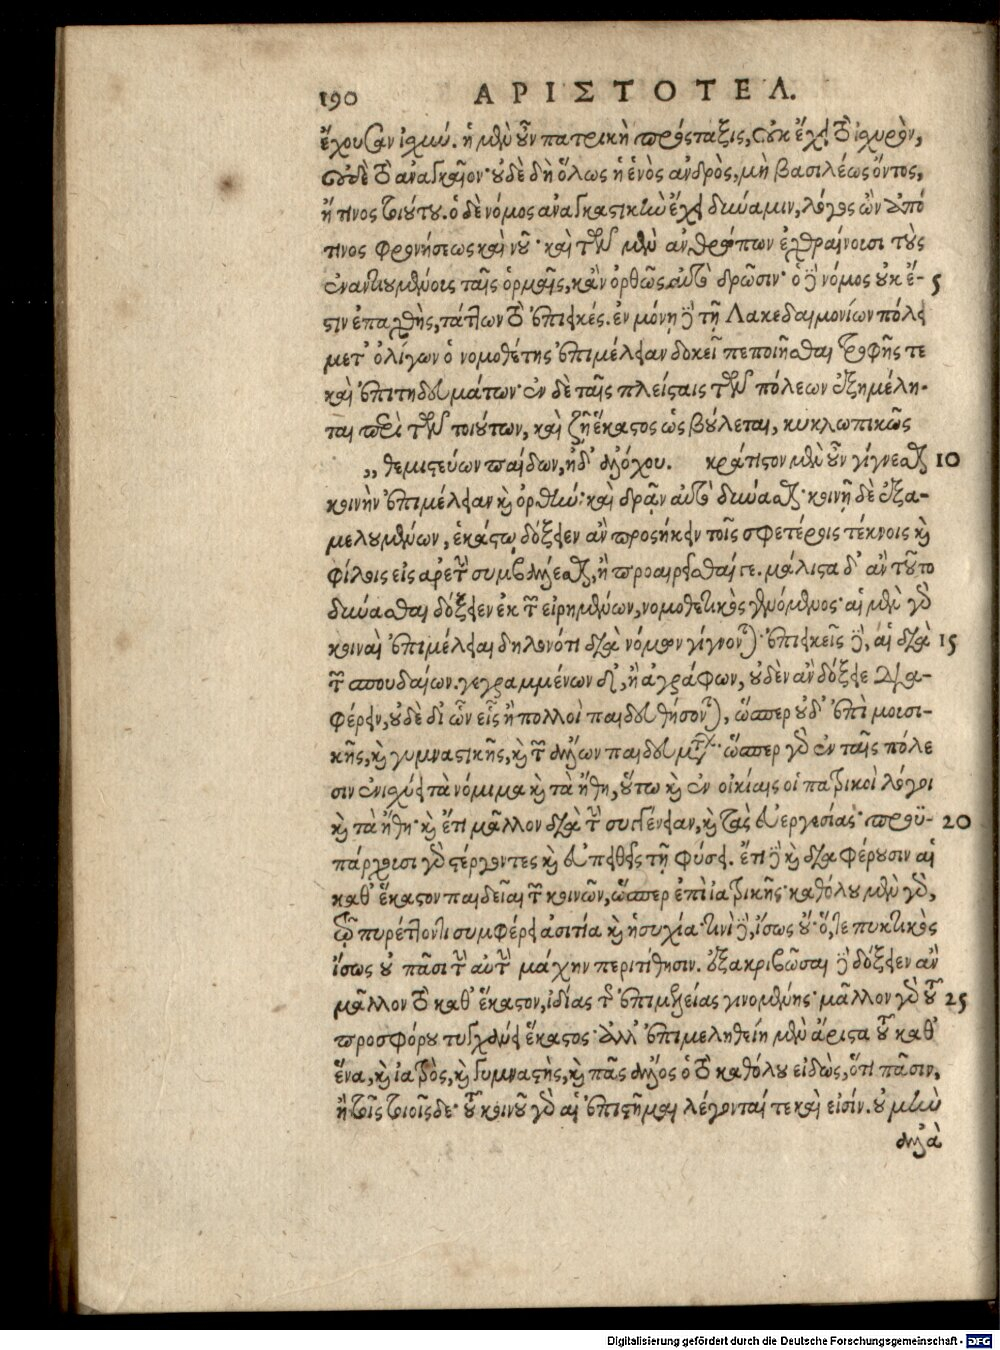 190 ΑΡΙΣΤΟΤΕΛ.
ἔχουσαν ἰσχύν. ἡ μὲν οὖν πατρικὴ πρόσταξις, οὐκ ἔχει τὸ ἰσχυρὸν,
οὐδὲ τὸ ἀναγκαῖον· οὐδὲ δὴ ὅλως ἡ ἑνὸς ἀνδρὸς, μὴ βασιλέως ὄντος,
ἤ τινος τοιούτου. ὁ δὲ νόμος ἀναγκαστικὴν ἔχει δύναμιν, λόγος ὢν ἀπό
τινος φρονήσεως καὶ νοῦ· καὶ τῶν μὲν ἀνθρώπων ἐχθραίνουσι τοὺς
ἐναντιουμένους ταῖς ὁρμαῖς, κἂν ὀρθῶς αὐτὸ δρῶσιν· ὁ δὲ νόμος οὐκ ἔ- 5
στιν ἐπαχθὴς, τάττων τὸ ἐπιεικές. ἐν μόνῃ δὲ τῇ Λακεδαιμονίων πόλει
μετ' ὀλίγων ὁ νομοθέτης ἐπιμέλειαν δοκεῖ πεποιῆσθαι τροφῆς τε
καὶ ἐπιτηδευμάτων· ἐν δὲ ταῖς πλείσταις τῶν πόλεων ἐξημέλη-
ται περὶ τῶν τοιούτων, καὶ ζῇ ἕκαστος ὡς βούλεται, κυκλωπικῶς
„ θεμιστεύων παίδων, ἠδ' ἀλόχου. κράτιστον μὲν οὖν γίγνεσθαι 10
κοινὴν ἐπιμέλειαν καὶ ὀρθήν· καὶ δρᾷν αὐτὸ δύνασθαι· κοινῇ δὲ ἐξα-
μελουμένων, ἑκάστῳ δόξειεν ἂν προσήκειν τοῖς σφετέροις τέκνοις καὶ
φίλοις εἰς ἀρετὴν συμβάλλεσθαι, ἢ προαιρεῖσθαί γε. μάλιστα δ' ἂν τοῦτο
δύνασθαι δόξειεν ἐκ τῶν εἰρημένων, νομοθετικὸς γενόμενος· αἱ μὲν γὰρ
κοιναὶ ἐπιμέλειαι δηλονότι διὰ νόμων γίγνονται· ἐπιεικεῖς δὲ, αἱ διὰ 15
τῶν σπουδαίων. γεγραμμένων δὲ, ἢ ἀγράφων, οὐδὲν ἂν δόξειε δια-
φέρειν, οὐδὲ δι' ὧν εἷς ἢ πολλοὶ παιδευθήσονται, ὥσπερ οὐδ' ἐπὶ μουσι-
κῆς, καὶ γυμναστικῆς, καὶ τῶν ἄλλων παιδευμάτων. ὥσπερ γὰρ ἐν ταῖς πόλε
σιν ἐνισχύει τὰ νόμιμα καὶ τὰ ἤθη, οὕτω καὶ ἐν οἰκίαις οἱ πατρικοὶ λόγοι
καὶ τὰ ἤθη· καὶ ἔτι μᾶλλον διὰ τὴν συγγένειαν, καὶ τὰς εὐεργεσίας· προϋ- 20
πάρχουσι γὰρ στέργοντες καὶ εὐπειθεῖς τῇ φύσει. ἔτι δὲ καὶ διαφέρουσιν αἱ
καθ' ἕκαστον παιδεῖαι τῶν κοινῶν, ὥσπερ ἐπὶ ἰατρικῆς· καθόλου μὲν γὰρ,
τῷ πυρέττοντι συμφέρει ἀσιτία καὶ ἡσυχία· τινὶ δὲ, ἴσως οὔ· ὅ, τε πυκτικὸς
ἴσως οὐ πᾶσι τὴν αὐτὴν μάχην περιτίθησιν. ἐξακριβῶσαι δὲ δόξειεν ἂν
μᾶλλον τὸ καθ' ἕκαστον, ἰδίας τῆς ἐπιμελείας γινομένης· μᾶλλον γὰρ τοῦ 25
προσφόρου τυγχάνει ἕκαστος· ἀλλ' ἐπιμεληθείη μὲν ἄριστα τοῦ καθ'
ἕνα, καὶ ἰατρὸς, καὶ γυμναστὴς, καὶ πᾶς ἄλλος ὁ τὸ καθόλου εἰδὼς, ὅτι πᾶσιν,
ἢ τοῖς τοιοῖσδε· τοῦ κοινοῦ γὰρ αἱ ἐπιστῆμαι λέγονταί τε καὶ εἰσίν. οὐ μὴν
ἀλλὰ
Digitalisierung gefördert durch die Deutsche Forschungsgemeinschaft - DFG